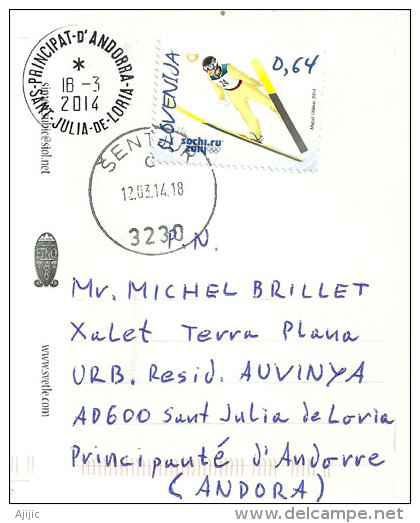 PRINCIPAT-D'ANDORRA
*
18-3
2014
SANT JULIA-DE-LORIA-
SLOVENIJA
0,64
sochi.ru
2014
12.03.14.18
3230
P.N.
Mr. MICHEL BRILLET
Xalet Terra Plana
URB. Resid. AUVINYA
AD600 Sant Julia de Loria
Principauté d'Andorre
(ANDORA)
www.svetle.com
Ajijic
delcampe.net